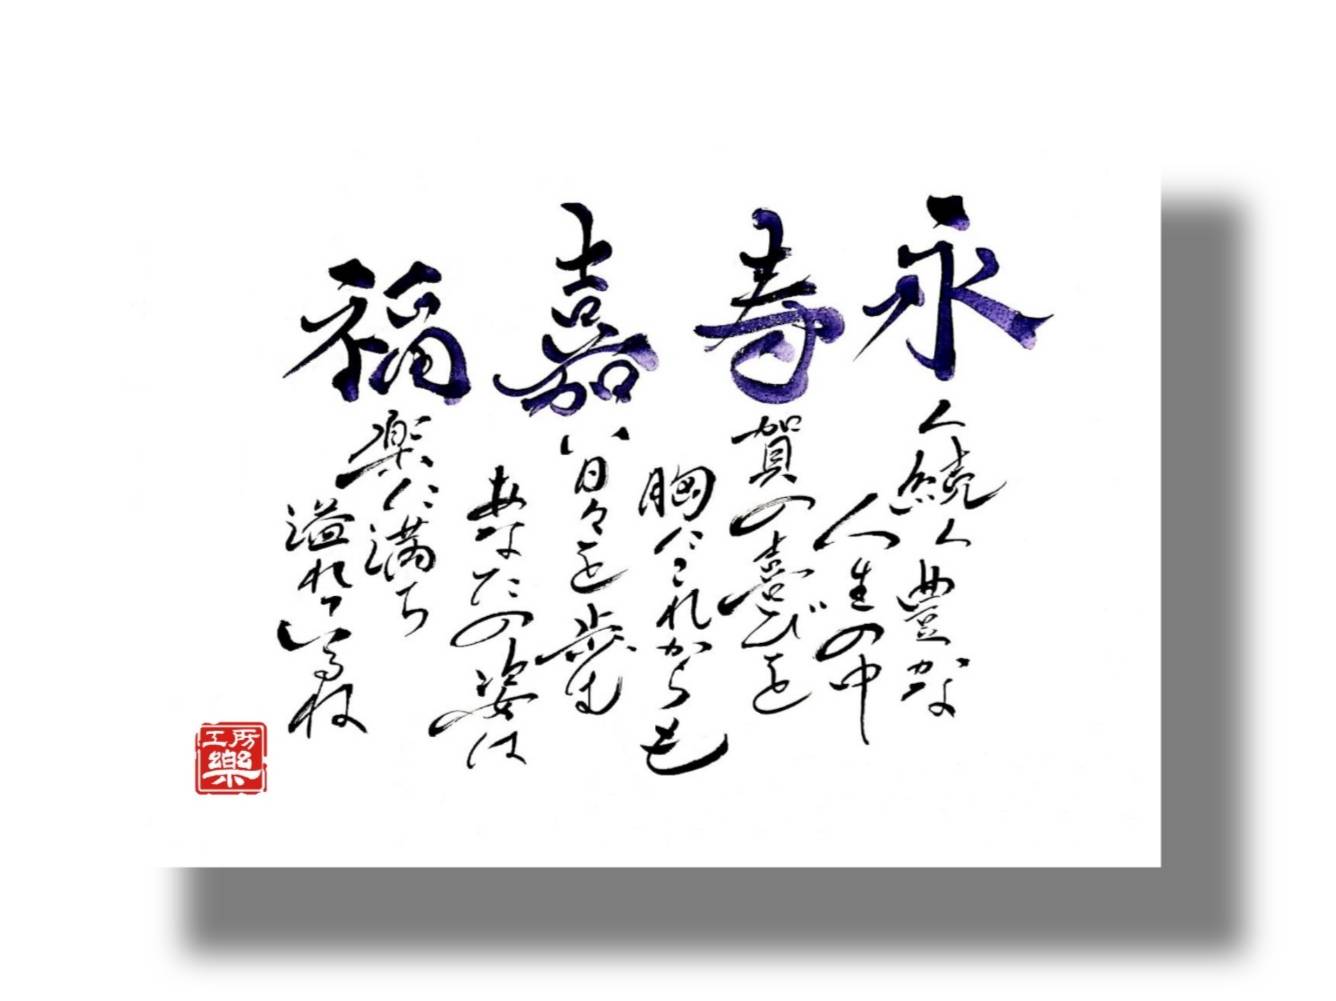 永く続く豊かな
人生の中
寿賀の喜びを
胸にこれからも
嘉い日々を歩む
あなたの姿は
福楽に満ち
溢れているね
工房
樂